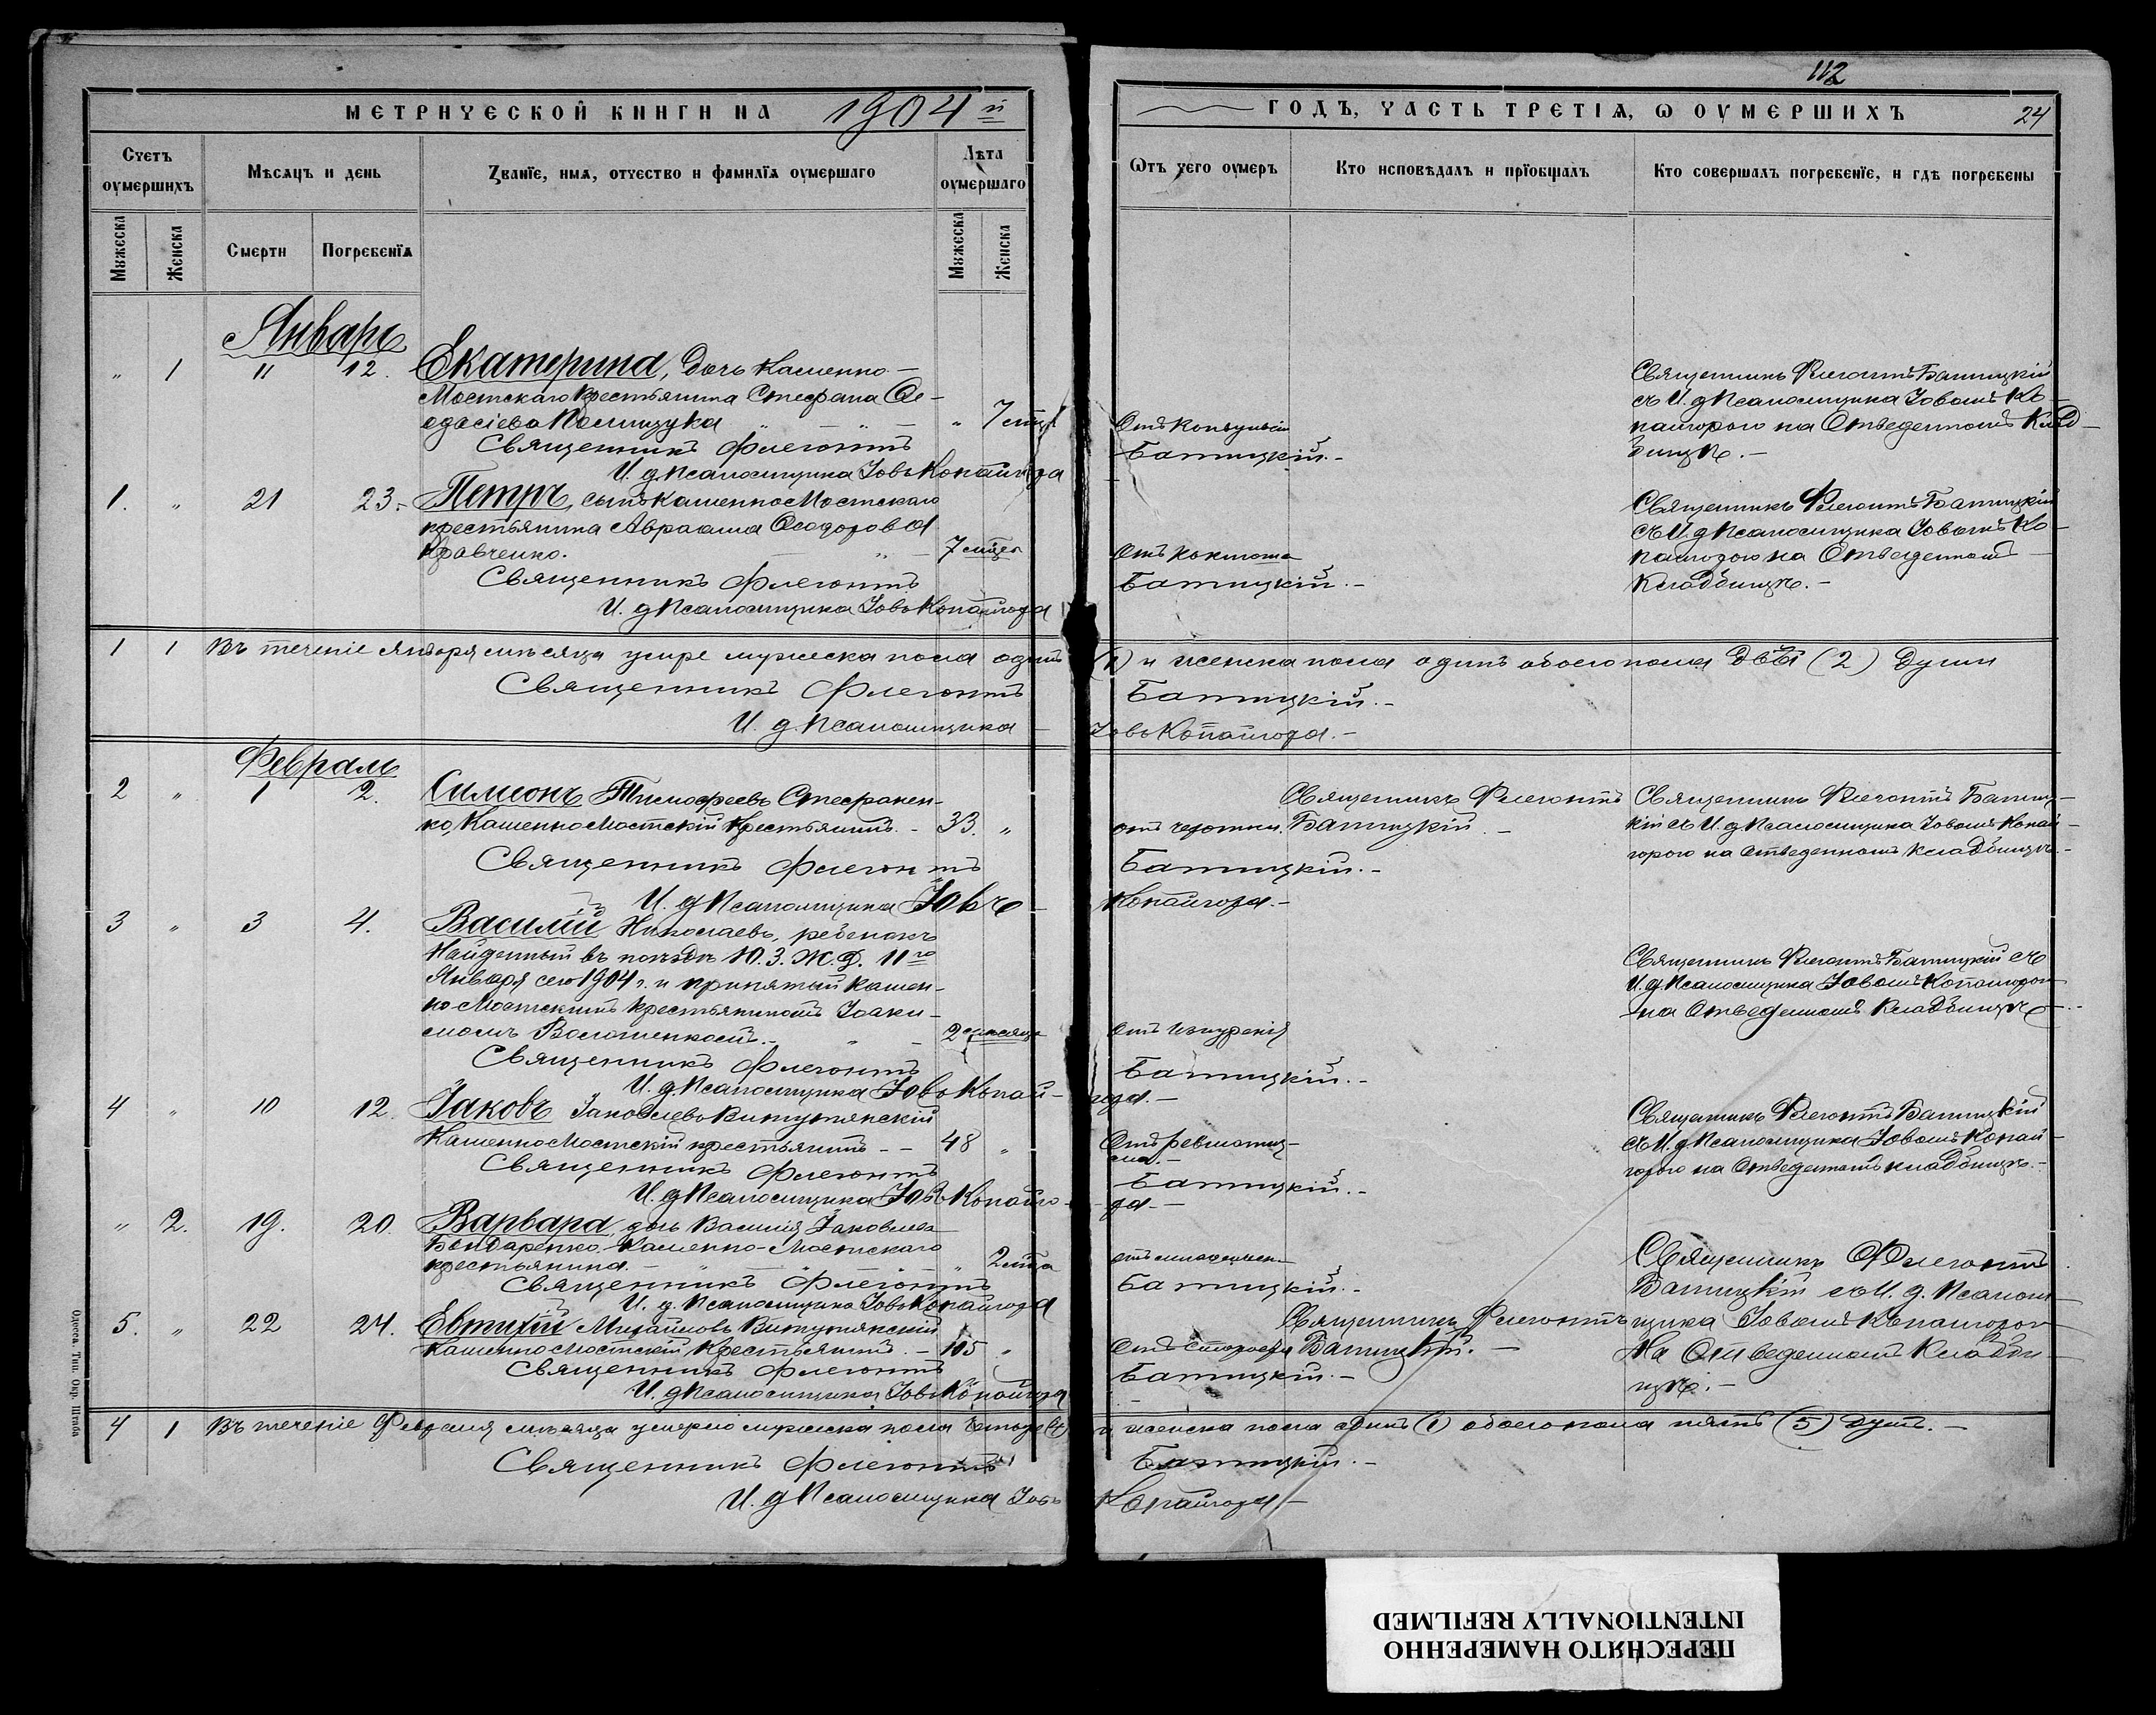 112
МЕТРИЧЕСКОЙ КНИГИ НА 1904 й
ГОДЪ, ЧАСТЬ ТРЕТІЯ, Ѡ ОУМЕРШИХЪ
24
Счетъ оумершихъ
Мѣсяцъ и день
Званїе, имя, отчество и фамилїя оумершаго
Лѣта оумершаго
Ѡтъ чего оумеръ
Кто исповѣдалъ и прїобщалъ
Кто совершалъ погребенїе, и гдѣ погребены
Мужеска
Женска
Смерти
Погребенїя
Мужеска
Женска
Январь
" 1 11 12. Екатерина, дочь Каменно-
Мостскаго Крестьянина Стефана Ѳе-
одасіева Полищука " 7 мѣц. Отъ конвульсіи
Священникъ Флегонтъ Батицкій.-
И. д Псаломщика Іовъ Копайгода
Священникъ Флегонтъ Батицкій
съ И. д Псаломщика Іовомъ Ко-
пайгорою на Отведенномъ Клад-
бищѣ.-
1. " 21 23.- Петръ, сынъ Каменно Мостскаго
крестьянина Авраама Ѳеодорова
Кравченко. 7 мѣц. Отъ коклюша
Священникъ Флегонтъ Батицкій.-
И. д Псаломщика Іовъ Копайгода
Священникъ Флегонтъ Батицкій
съ И. д Псаломщика Іовомъ Ко-
пайгодою на Отведенномъ
Кладбищѣ.-
1 1 Въ теченіе Января мѣсяца умре мужеска пола одинъ (1) и женска пола одинъ обоего пола двѣ (2) души
Священникъ Флегонтъ Батицкій.-
И. д. Псаломщика Іовъ Копайгода.-
Февраль
2 " 1 2. Симеонъ Тимофеевъ Стефанен-
ко, Каменно Мостскій Крестьянинъ.- 33. " отъ чахотки. Священникъ Флегонтъ Батицкій.-
Священникъ Флегонтъ Батицкій.-
И. д Псаломщика Іовъ Копайгода.-
Священникъ Флегонтъ Батиц-
кій съ И. д Псаломщика Іовомъ Копай-
горою на Отведенномъ Кладбищѣ.-
3 " 3 4. Василій Николаевъ, ребенокъ
Найденный въ поѣздѣ Ю. З. Ж. Д. 11го
Января сего 1904 г. и принятый Камен-
но Мостскимъ Крестьяниномъ Іоаки-
момъ Волошенкомъ.- 2 мѣсяца Отъ изнуренія
Священникъ Флегонтъ Батицкій.-
И. д Псаломщика Іовъ Копай-года.-
Священникъ Флегонтъ Батицкій съ
И. д. Псаломщика Іовомъ Копайгодою
на Отведенномъ Кладбищѣ.-
4 " 10 12. Іаковъ Іаковлевъ
Каменно Мостскій крестьянинъ -- 48 " Отъ ревматиз-
ма.-
Священникъ Флегонтъ Батицкій.-
И. д Псаломщика Іовъ Копайго-да.-
Священникъ Флегонтъ Батицкій
съ И. д Псаломщика Іовомъ Копай-
горою на Отведенномъ кладбищѣ.-
" 2. 19. 20. Варвара, дочь Василія Іаковлева
Бондаренко Каменно-Мостскаго
крестьянина.- " 2 мѣц
Священникъ Флегонтъ Батицкій.-
И. д. Псаломщика Іовъ Копайгода
Священникъ Флегонтъ
Батицкій съ И. д. Псалом-
щика Іовомъ Копайгодою
На Отведенномъ Кладби-
щѣ.-
5. " 22 24. Евтихій Михайловъ
Каменно Мостскій Крестьянинъ.- 105 " Отъ Старости Священникъ Флегонтъ Батицкій.-
Священникъ Флегонтъ Батицкій.-
И. д Псаломщика Іовъ Копайгода
4 1 Въ теченіе Февраля мѣсяца умерло мужеска пола Четыре (4) и женска пола одинъ (1) обоего пола пять (5) душъ.-
Священникъ Флегонтъ Батицкій.-
И. д Псаломщика Іовъ Копайгода-
Одесса. Тип. Окр. Штаба
ПЕРЕСНЯТО НАМЕРЕННО
INTENTIONALLY REFILMED